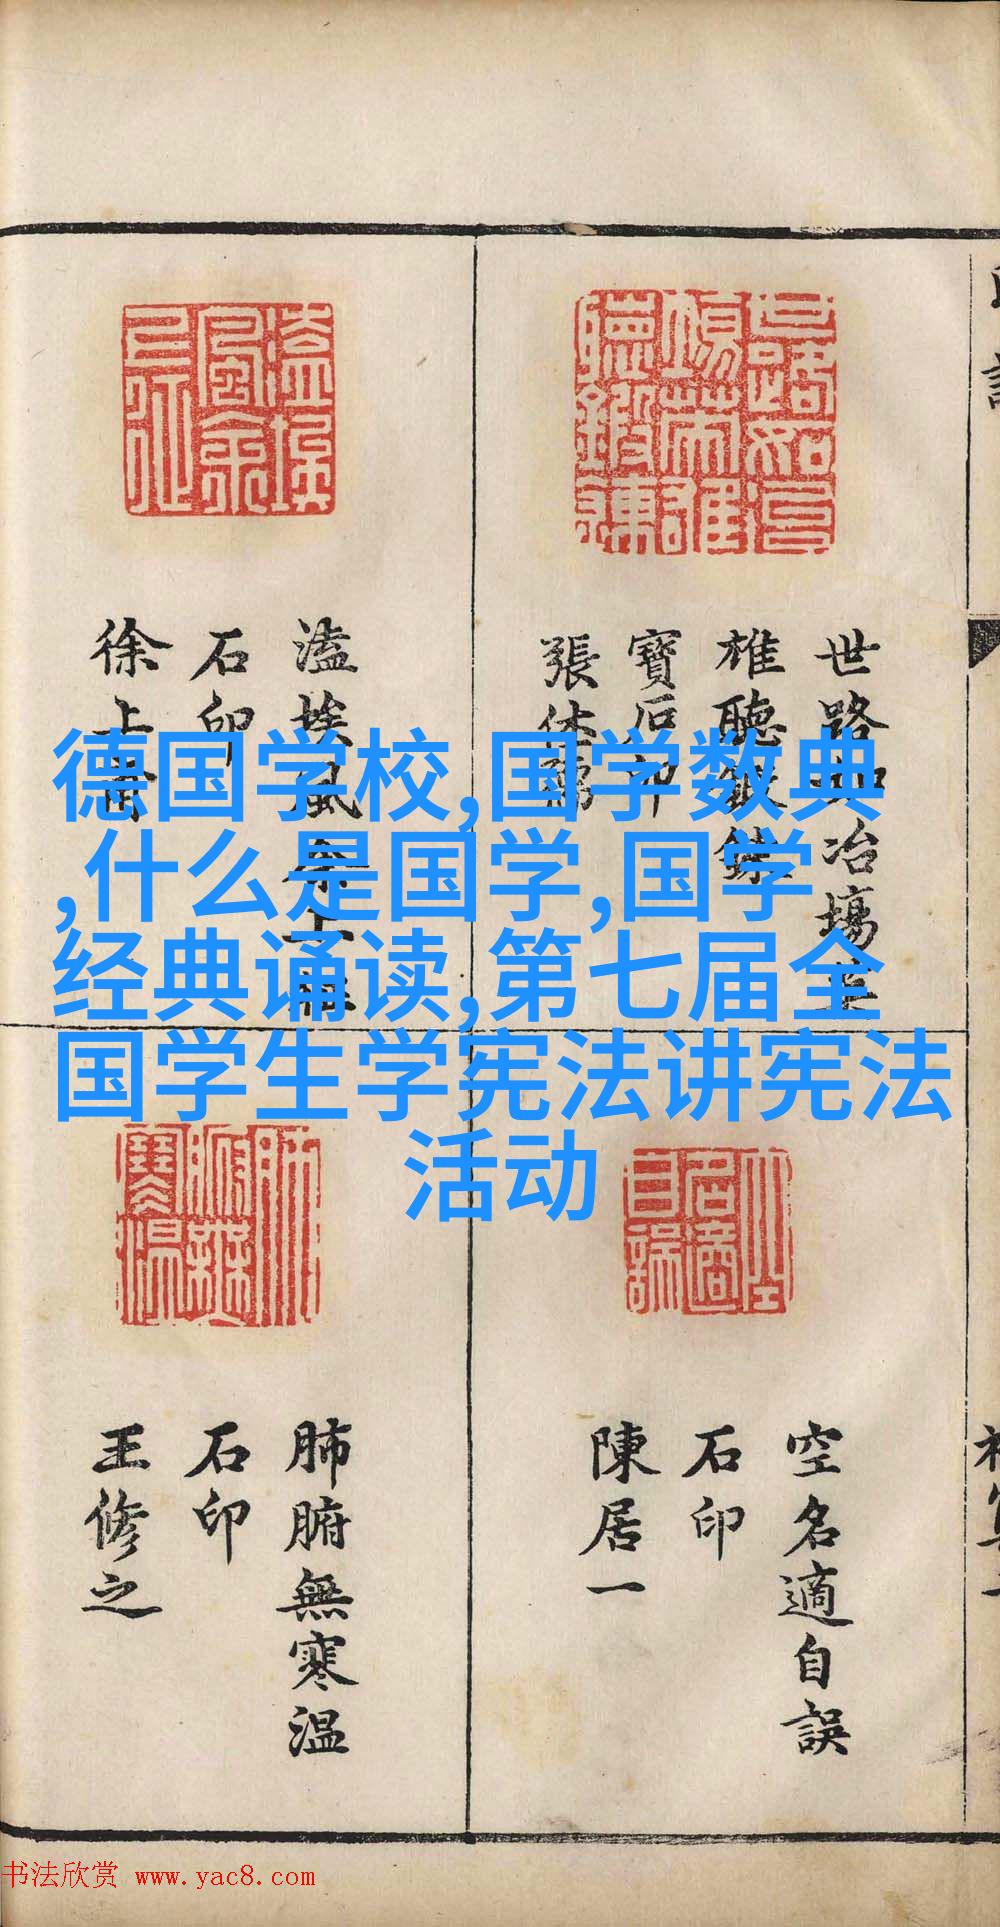 德国学校,国学数典
,什么是国学,国学
经典诵读,第七届全
国学生学宪法讲宪法
活动
世路如冶塲
雄聽鍛鍊
寶石印
張休孺
溘埃風余上征
石印
徐上
空名適自誤
石印
陳居一
肺腑無寒温
石印
王修之
书法欣赏 www.yac8.com